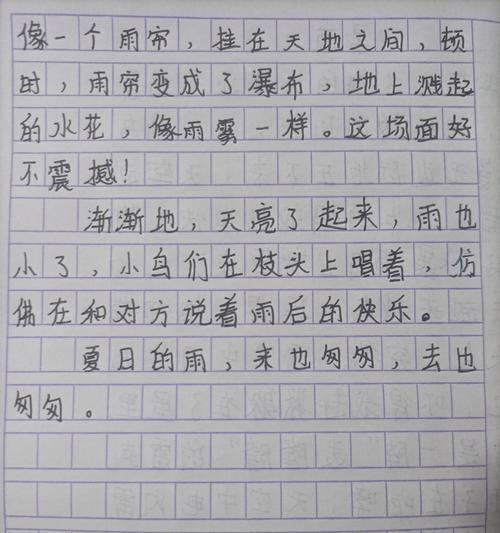 像一个雨帘，挂在天地之间，顿
时，雨帘变成了瀑布，地上溅起
的水花，像雨雾一样。这场面好
不震撼！
渐渐地，天亮了起来，雨也
小了，小鸟们在枝头上唱着，仿
佛在和对方说着雨后的快乐。
夏日的雨，来也匆匆，去也
匆匆。